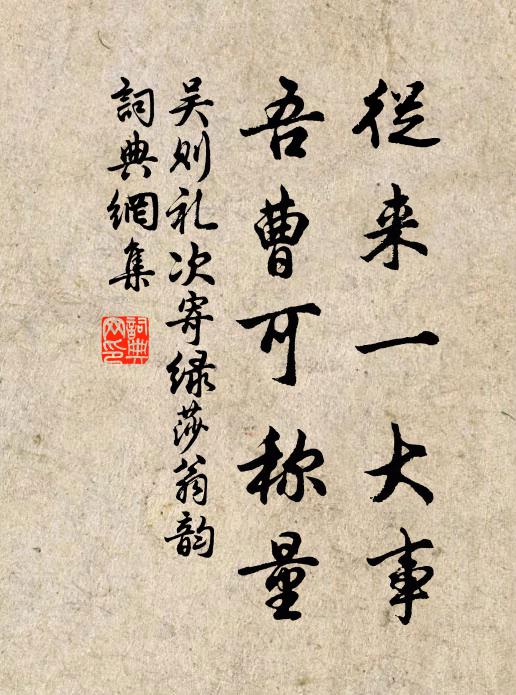 從来一大事
吾曹可称量
吴则礼次寄绿莎翁韵
詞典網集
詞典網印